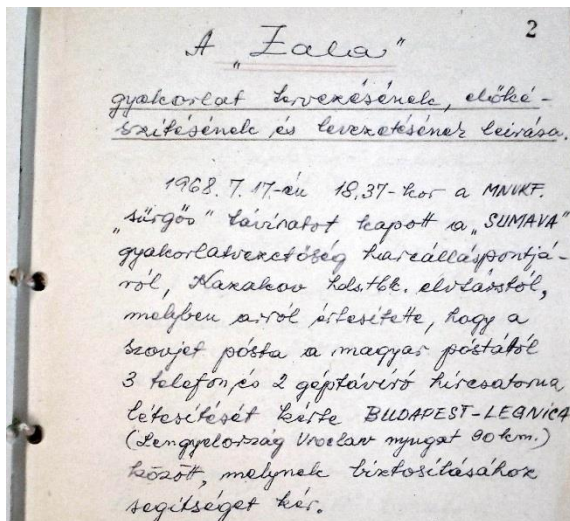 2
A „Zala"
gyakorlat tervezésének, előké-
szítésének és levezetésének leírása.
1968. 7. 17.-én 18,37-kor a MNVKF.
„sürgős" táviratot kapott a „SUMAVA"
gyakorlatvezetőség harcálláspontjá-
ról, Kazakov hds.tbk. elvtárstól,
melyben arról értesítette, hogy a
szovjet pósta a magyar póstától
3 telefon, és 2 géptávíró hírcsatorna
létesítését kérte BUDAPEST-LEGNICA
(Lengyelország Vroclav nyugat 90 km.)
között, melynek biztosításához
segítséget kér.